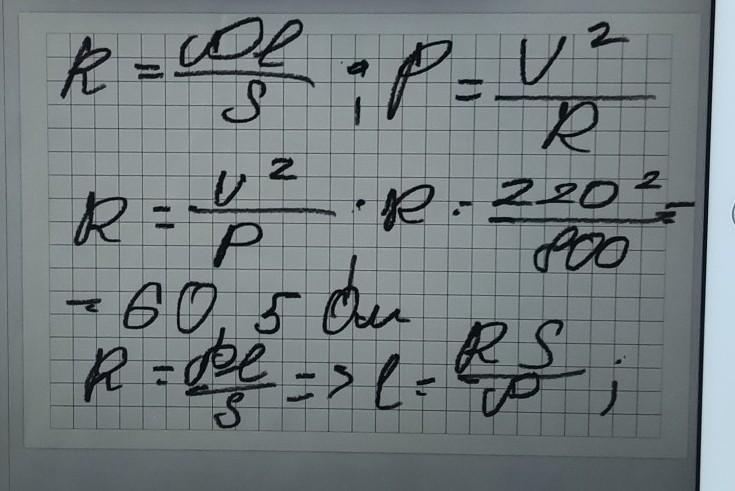 R = ρl/S ; P = U²/R
R = U²/P ; R = 220²/800 =
= 60,5 Ом
R = ρl/S => l = RS/ρ ;